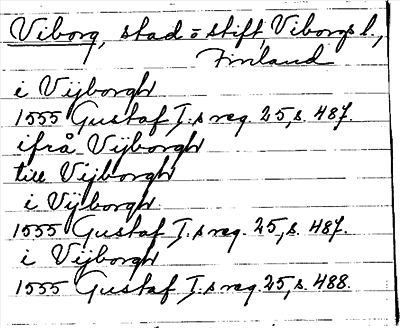 Viborg, stad o stift, Viborgs l.,
Finland
i Vijborgh
1555 Gustaf I.s reg. 25, s. 487.
ifrå Vijborgh
till Vijborgh
i Vijborgh
1555 Gustaf I.s reg. 25, s. 487.
i Vijborgh
1555 Gustaf I.s reg. 25, s. 488.